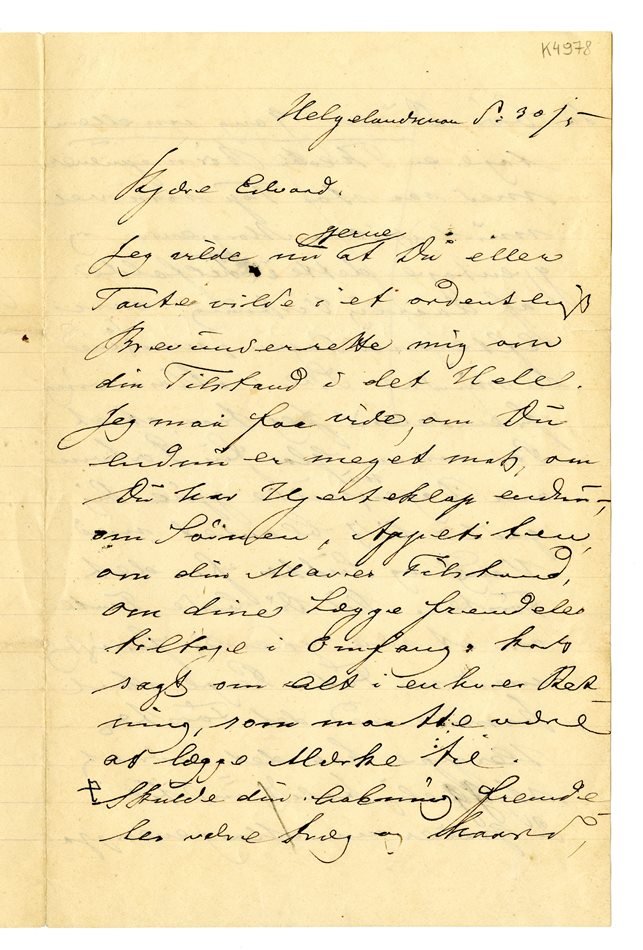 K4978
Helgelandsmoen d: 30/5
Kjære Edvard.
gerne
Jeg vilde nu at Du eller
Tante vilde i et ordentligt
Brev underrette mig om
din Tilstand i det Hele.
Jeg maa faa vide, om Du
endnu er meget mat, om
Du har Hjerteklap endnu,
om Søvnen, Appetiten,
om din Maves Tilstand,
om dine Lægge fremdeles
tiltage i Omfang, kort
sagt om alt i enhver Ret
ning, som maatte være
at lægge Mærke til.
Skulde din fremde
les være træg og haard,